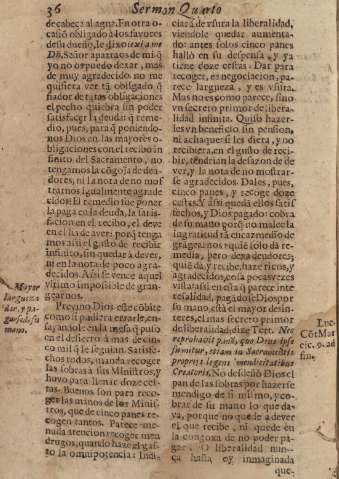 36 Sermon Quarto
de cabeça al agua. En otra o-
casiõ obligado a los favores
de su dueño, le dixo: exi a me
Dñe. Señor apartaos de mi q̃
yo no os puedo dexar, mas
de muy agradecido no me
quisiera ver tã obligado, q̃
fiador de tãtas obligaciones
el pecho quiebra sin poder
satisfacer la deuda: q̃ reme-
dio, pues, para q̃ poniendo-
nos Dios en las mayores o-
bligaciones con el recibo in
finito del Sacramento, no
tengamos la cõgoja de deu-
dores, ni la nota de no mos-
trarnos igualmente agrade-
cidos? El remedio fue poner
la paga en la deuda, la satis-
facion en el recibo, el deve
en el ha de aver: porq̃ tenga
mos assi el gusto de recibir
infinito, sin quedar à dever,
ni en la nota de poco agra-
decidos. Assi se vence aquel
vltimo impossible de gran-
gearnos.
Mayor
largueza
dar, y pa-
garse de su
mano.
Previno Dios este cõbite
como si pudiera errarle, en-
sayandole en la mesa q̃ puso
en el desierto à mas de cin-
co mil q̃ le seguian. Satisfe-
chos todos, manda recoger
las sobras a sus Ministros, y
huvo para llenar doze ces-
tas. Buenos son para reco-
ger las manos de los Minis-
tros, que de cinco panes re-
cogen tantos. Parece me-
nuda atencion recoger men
drugos, quando haze el gas-
to la omnipotencia: Indi-
ciarà de vsura la liberalidad,
viendole quedar aumenta-
do: antes solos cinco panes
hallò en su despensa, y ya
tiene doze cestas: Dar para
recoger, es negociacion, pa-
rece largueza, y es vsura.
Mas no es como parece, sino
vn secreto primor de libera-
lidad infinita. Quiso hazer-
les vn beneficio sin pension,
ni achaque: si les diera, y no
recibiera, en el gusto de reci-
bir, tendrian la desazon de de
ver, y la nota de no mostrar-
se agradecidos. Dales, pues,
cinco panes, y recoge doze
cestas. Y assi quedã ellos satis-
fechos, y Dios pagado: cobra
de su mano porq̃ no malee la
ingratitud tã encazmẽ to de
gragearnos: quiẽ solo dà re-
media, pero dexa deudores;
quiẽ dà, y recibe, haze ricos, y
agradecidos, esta pocas vezes
vista, assi en esta q̃ parece inte-
resalidad, pagãdose Dios por
su mano està el mayor desin-
teres, el mas secreto primor
de liberalidad, dize Tert. Nec
reprobavit panẽ, quo Deus ipse
sumitur, etiam in Sacramentis
proprijs egens mendicitatibus
Creatoris. No desdeñò Dios el
pan de las sobras por hazerse
mendigo de si mismo, y co-
brar de su mano lo que da-
va, por que no quede a dever
el que recibe, ni quede en
la congoxa de no poder pa-
gar. O liberalidad nun-
ca hasta oy imaginada
que-